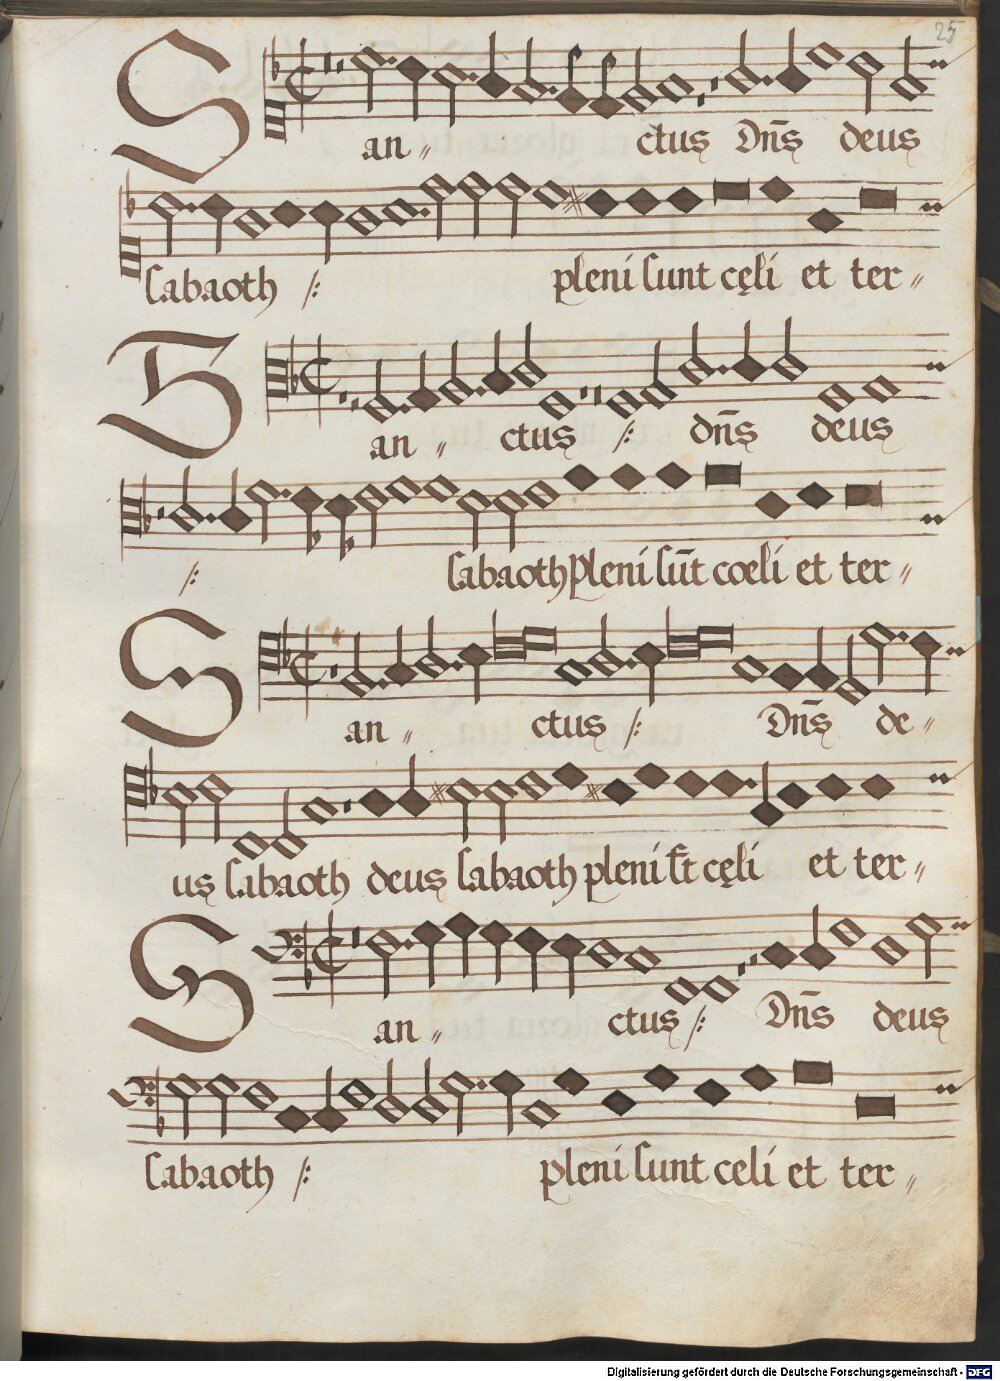 25
San〃 ctus Dn̄s deus
sabaoth /: pleni sunt cęli et ter〃
San〃 ctus /: dn̄s deus
/: sabaoth pleni sūt coeli et ter〃
San〃 ctus /: Dn̄s de〃
us sabaoth deus sabaoth pleni st̄ cęli et ter〃
San〃 ctus /: Dn̄s deus
sabaoth /: pleni sunt celi et ter〃
Digitalisierung gefördert durch die Deutsche Forschungsgemeinschaft - DFG